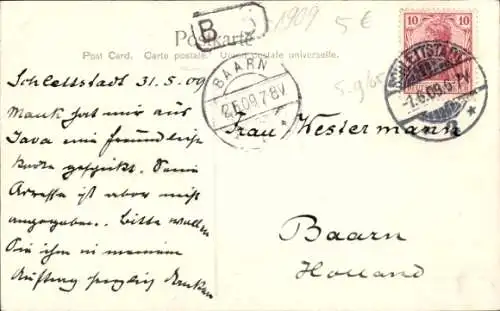 1909
5 €
B
Postkarte
Post Card. Carte postale. Union postale universelle.
10 10
SCHLETTSTADT
1.6.09.5-7V
BAARN
2.6.09.7-8V
Schlettstadt 31.5.09
Mank hat mir aus
Java eine freundliche
Karte geschickt. Seine
Adresse ist aber nicht
angegeben. Bitte wollen
Sie ihm in meinem
Auftrag herzlich danken
Frau Westermann
Baarn
Holland